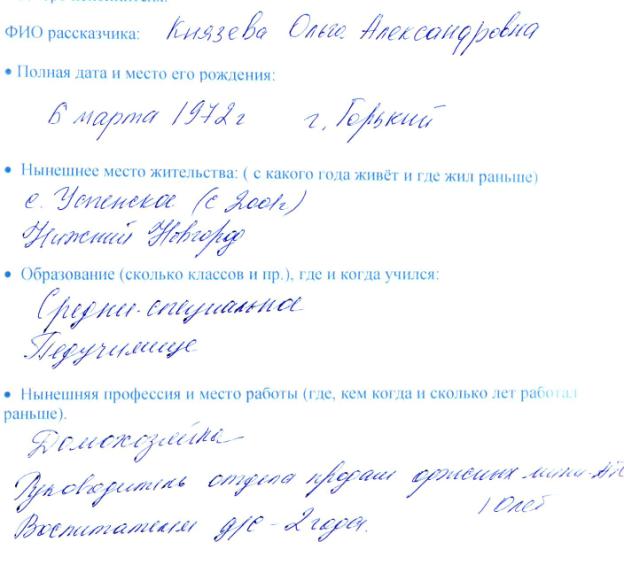 ФИО рассказчика: Князева Ольга Александровна
• Полная дата и место его рождения:
6 марта 1972 г г. Горький
• Нынешнее место жительства: ( с какого года живёт и где жил раньше)
с. Успенское (с 2001г)
Нижний Новгород
• Образование (сколько классов и пр.), где и когда учился:
Средне-специальное
Педучилище
• Нынешняя профессия и место работы (где, кем когда и сколько лет работал
раньше).
Домохозяйка
Руководитель отдела продаж офисных мини-АТС
10 лет
Воспитателем д/с - 2 года.